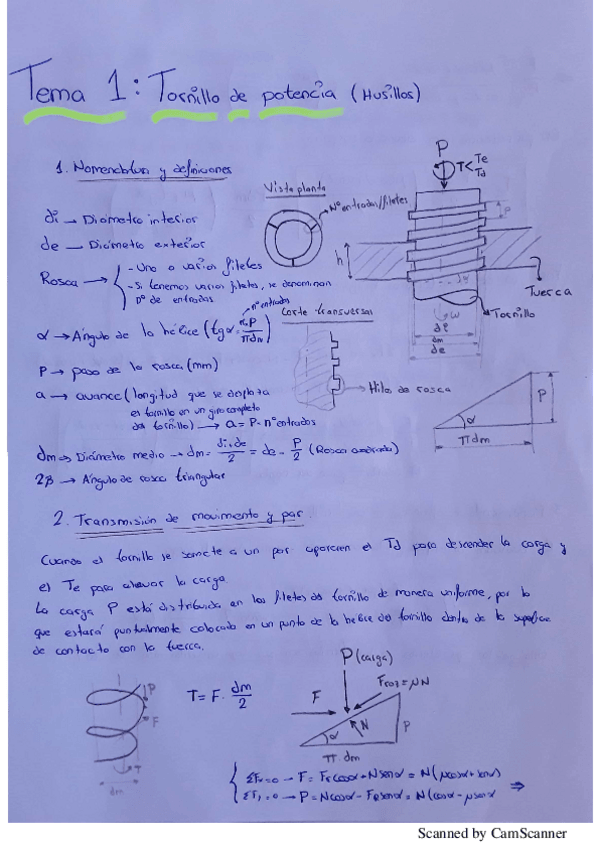 Tema 1: Tornillo de potencia (Husillos)
1. Nomenclatura y definiciones
di → Diámetro interior
de → Diámetro exterior
Rosca → { - Uno o varios filetes
- Si tenemos varios filetes, se denominan
nº de entradas
α → Ángulo de la hélice (tgα = n·P / πdm)
nº entradas
P → paso de la rosca (mm)
a → avance (longitud que se desplaza
el tornillo en un giro completo
del tornillo) → a = P · nº entradas
dm → Diámetro medio → dm = di+de / 2 = de - P/2 (Rosca cuadrada)
2β → Ángulo de rosca triangular
Vista planta
Nº entradas/filetes
Corte transversal
Hilo de rosca
P
T < Te
Td
P
h
Tuerca
Tornillo
ω
di
dm
de
P
α
πdm
2. Transmisión de movimiento y par
Cuando el tornillo se somete a un par aparecen el Td para descender la carga y
el Te para elevar la carga.
La carga P está distribuida en los filetes del tornillo de manera uniforme, por lo
que estará puntualmente colocada en un punto de la hélice del tornillo dentro de la superficie
de contacto con la tuerca.
P
F
T
dm
T = F · dm/2
P (carga)
F
Froz = μN
N
α
P
π · dm
{ ΣFx=0 → F = Frcosα + Nsenα = N(μcosα + senα)
ΣFy=0 → P = Ncosα - FRsenα = N(cosα - μsenα ⇒
Scanned by CamScanner